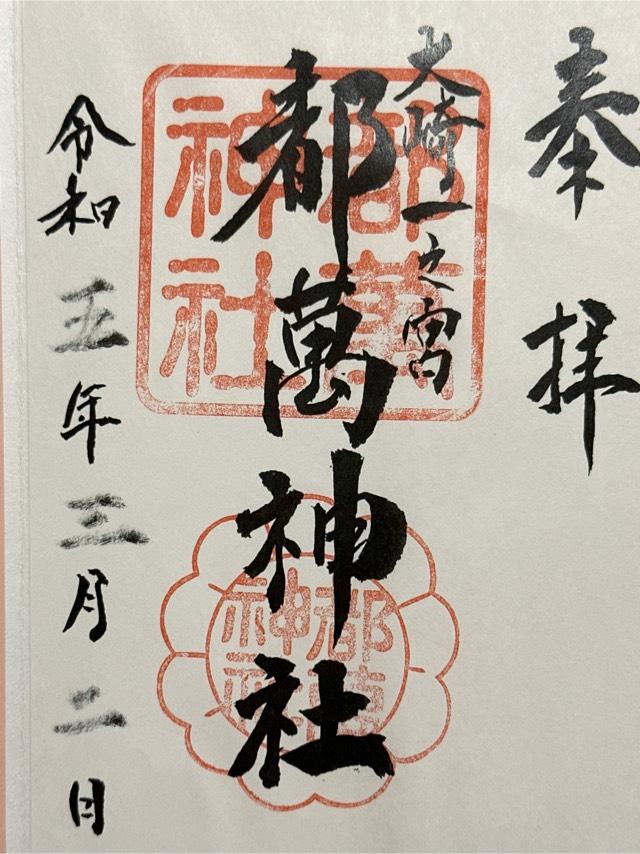 奉拝
大崎一之宮
都萬神社
都萬神社
令和五年三月二日